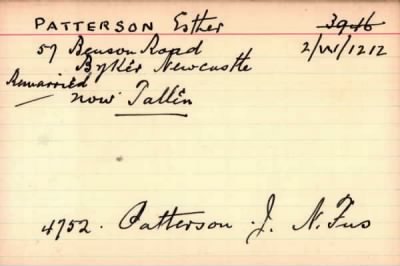 PATTERSON Esther 3946
57 Benson Road 2/W/1212
Byker Newcastle
Remarried
now Tallin
4752. Patterson J. N. Fus